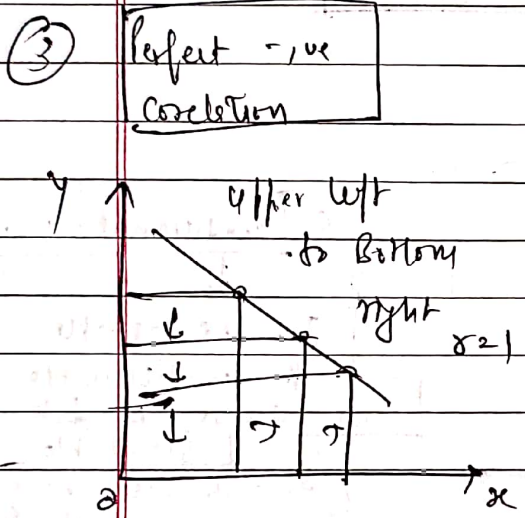 ③
Perfect -ive
Corelation
y
Upper left
to Bottom
right
r=1
0
x